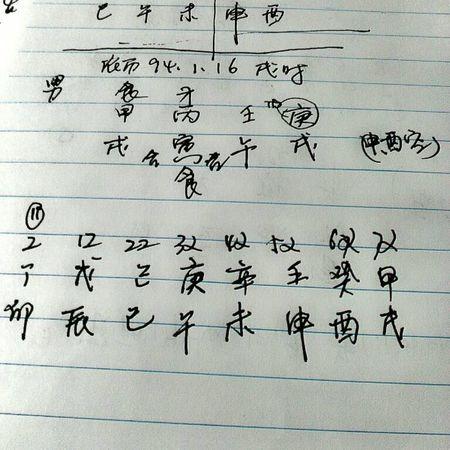 巳 午 未 申 酉
农历 94.1.16 戌时
男 食 才
甲 丙 壬 庚
戌 合 寅 合 午 戌 (申酉空)
食
2 12 22 32 42 52 62 72
丁 戊 己 庚 辛 壬 癸 甲
卯 辰 巳 午 未 申 酉 戌